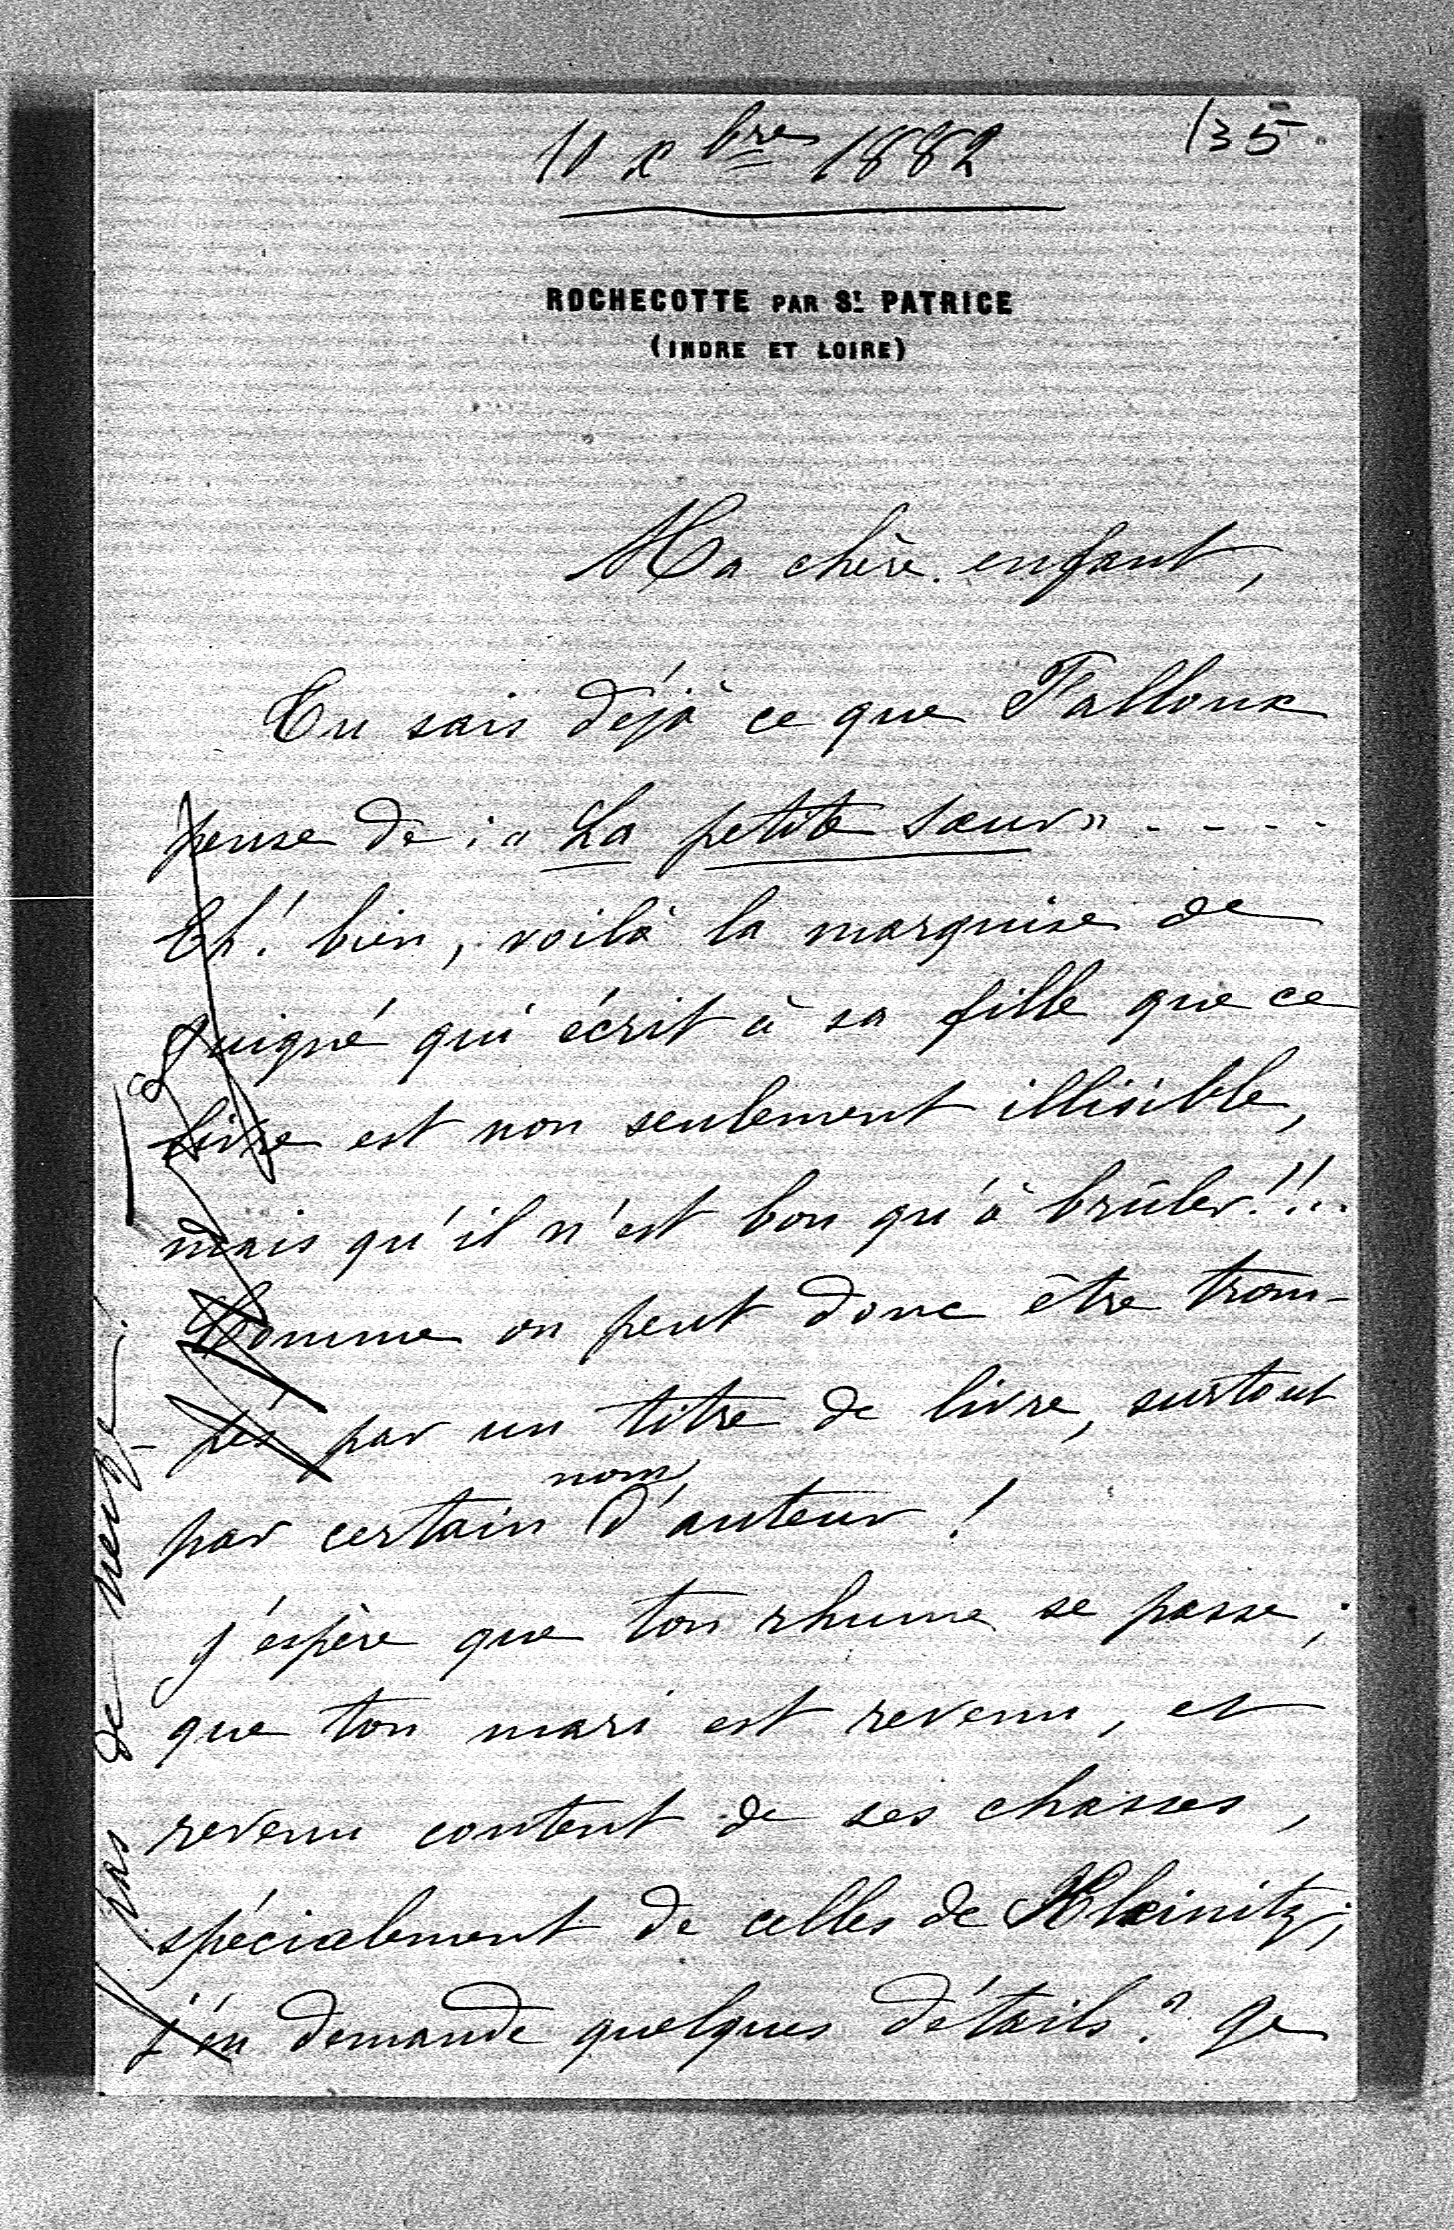 135.
10 xbre 1882
ROCHECOTTE PAR St. PATRICE
(INDRE ET LOIRE)
Ma chère enfant,
Tu sais déjà ce que Falloux
pense de : « La petite sœur » - - - -
Eh! bien, voilà la marquise de
Guigné qui écrit à sa fille que ce
livre est non seulement illisible,
mais qu'il n'est bon qu'à brûler!!..
Comme on peut donc être trom-
-pés par un titre de livre, surtout
par certain nom d'auteur!
J'espère que ton rhume se passe;
que ton mari est revenu, et
revenu content de ses chasses,
spécialement de celles de Kleinitz;
j'en demande quelques détails? Je
pas de neige.